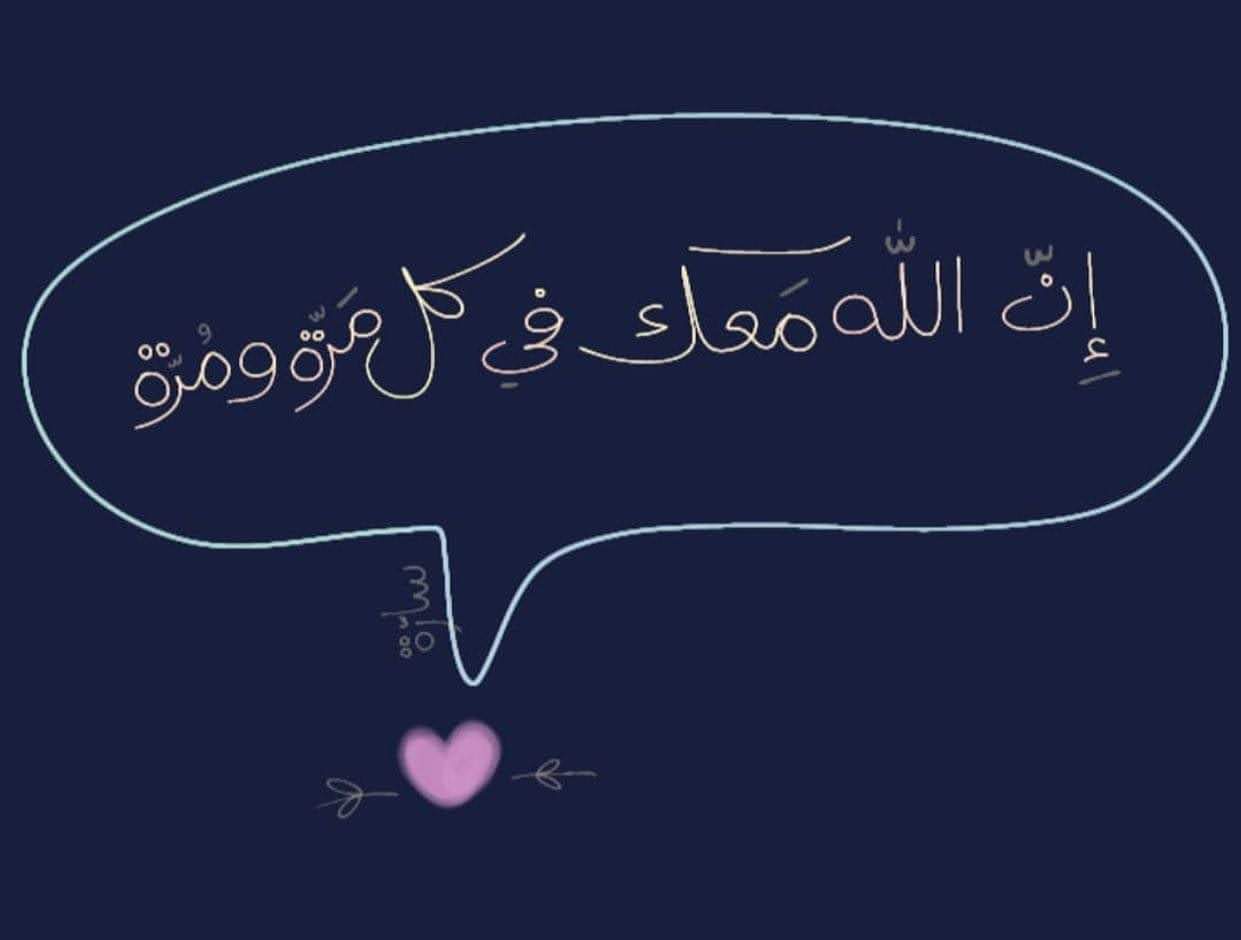 إِنّ اللّٰه مَعك فيِ كل مَرّة ومُرّة
سارّة